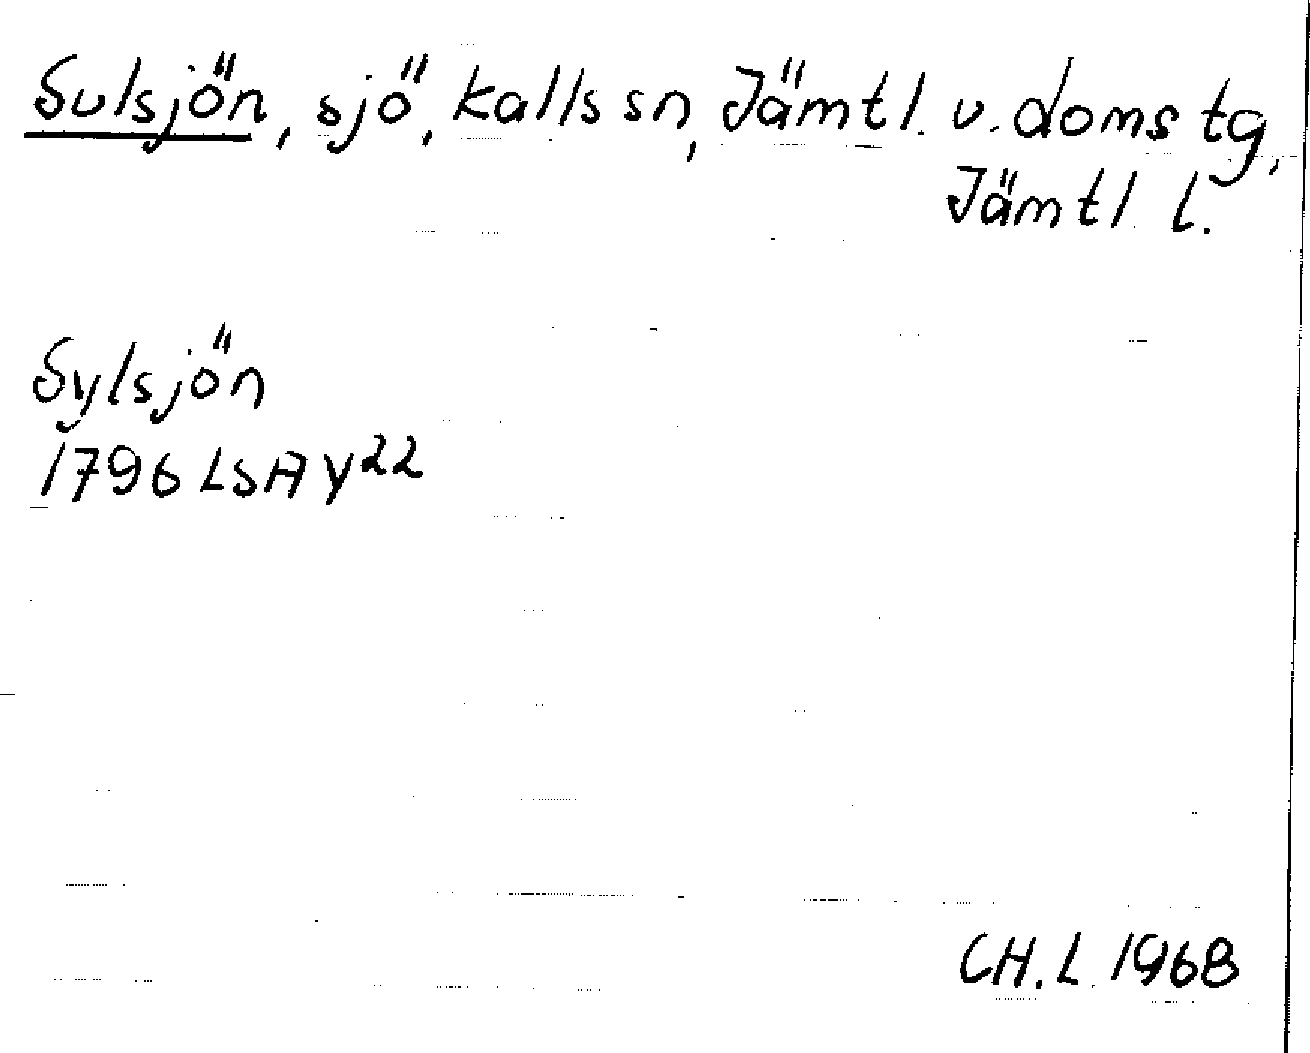 Sulsjön, sjö, Kalls sn, Jämtl. v. doms tg,
Jämtl. l.
Sylsjön
1796 LSA Y22
CH. L. 1968